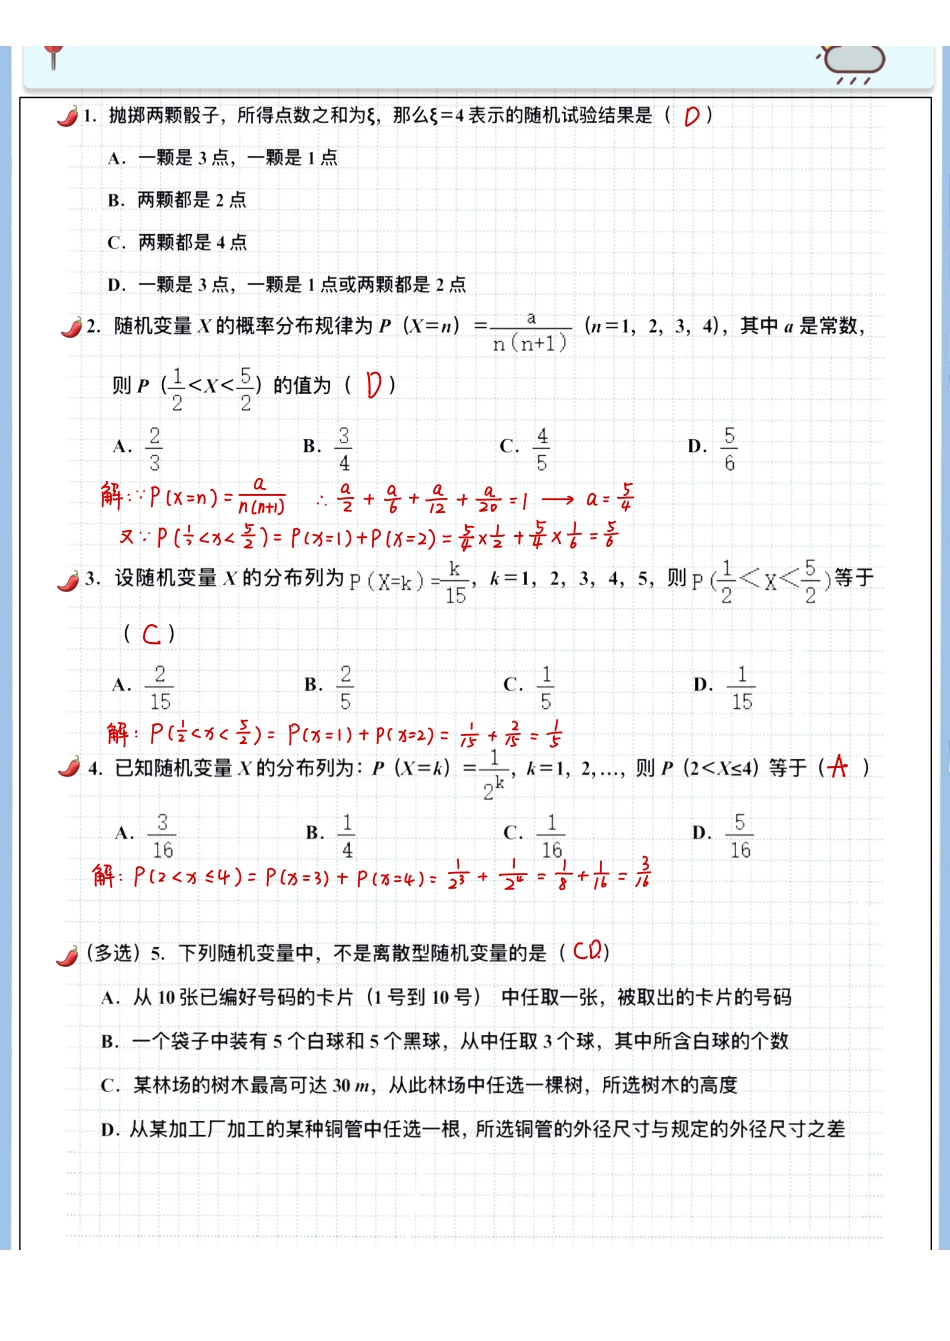 1. 抛掷两颗骰子，所得点数之和为ξ，那么ξ=4 表示的随机试验结果是（ D ）
A．一颗是 3 点，一颗是 1 点
B．两颗都是 2 点
C．两颗都是 4 点
D．一颗是 3 点，一颗是 1 点或两颗都是 2 点
2. 随机变量 X 的概率分布规律为 P（X=n）= a/n(n+1)（n=1，2，3，4），其中 a 是常数，
则 P（1/2＜X＜5/2）的值为（ D ）
A．2/3 B．3/4 C．4/5 D．5/6
解：∵P(X=n)=a/n(n+1) ∴ a/2 + a/6 + a/12 + a/20 =1 → a=5/4
又∵P(1/2<x<5/2)=P(x=1)+P(x=2)=5/4×1/2+5/4×1/6=5/6
3. 设随机变量 X 的分布列为 P(X=k)=k/15，k=1，2，3，4，5，则 P(1/2＜X＜5/2)等于
（ C ）
A．2/15 B．2/5 C．1/5 D．1/15
解：P(1/2<x<5/2)=P(x=1)+P(x=2)=1/15+2/15=1/5
4. 已知随机变量 X 的分布列为：P（X=k）=1/2^k，k=1，2，…，则 P（2＜X≤4）等于（ A ）
A．3/16 B．1/4 C．1/16 D．5/16
解：P(2<x≤4)=P(x=3)+P(x=4)=1/2^3+1/2^4=1/8+1/16=3/16
（多选）5．下列随机变量中，不是离散型随机变量的是（ CD ）
A．从 10 张已编好号码的卡片（1 号到 10 号） 中任取一张，被取出的卡片的号码
B．一个袋子中装有 5 个白球和 5 个黑球，从中任取 3 个球，其中所含白球的个数
C．某林场的树木最高可达 30 m，从此林场中任选一棵树，所选树木的高度
D．从某加工厂加工的某种铜管中任选一根，所选铜管的外径尺寸与规定的外径尺寸之差